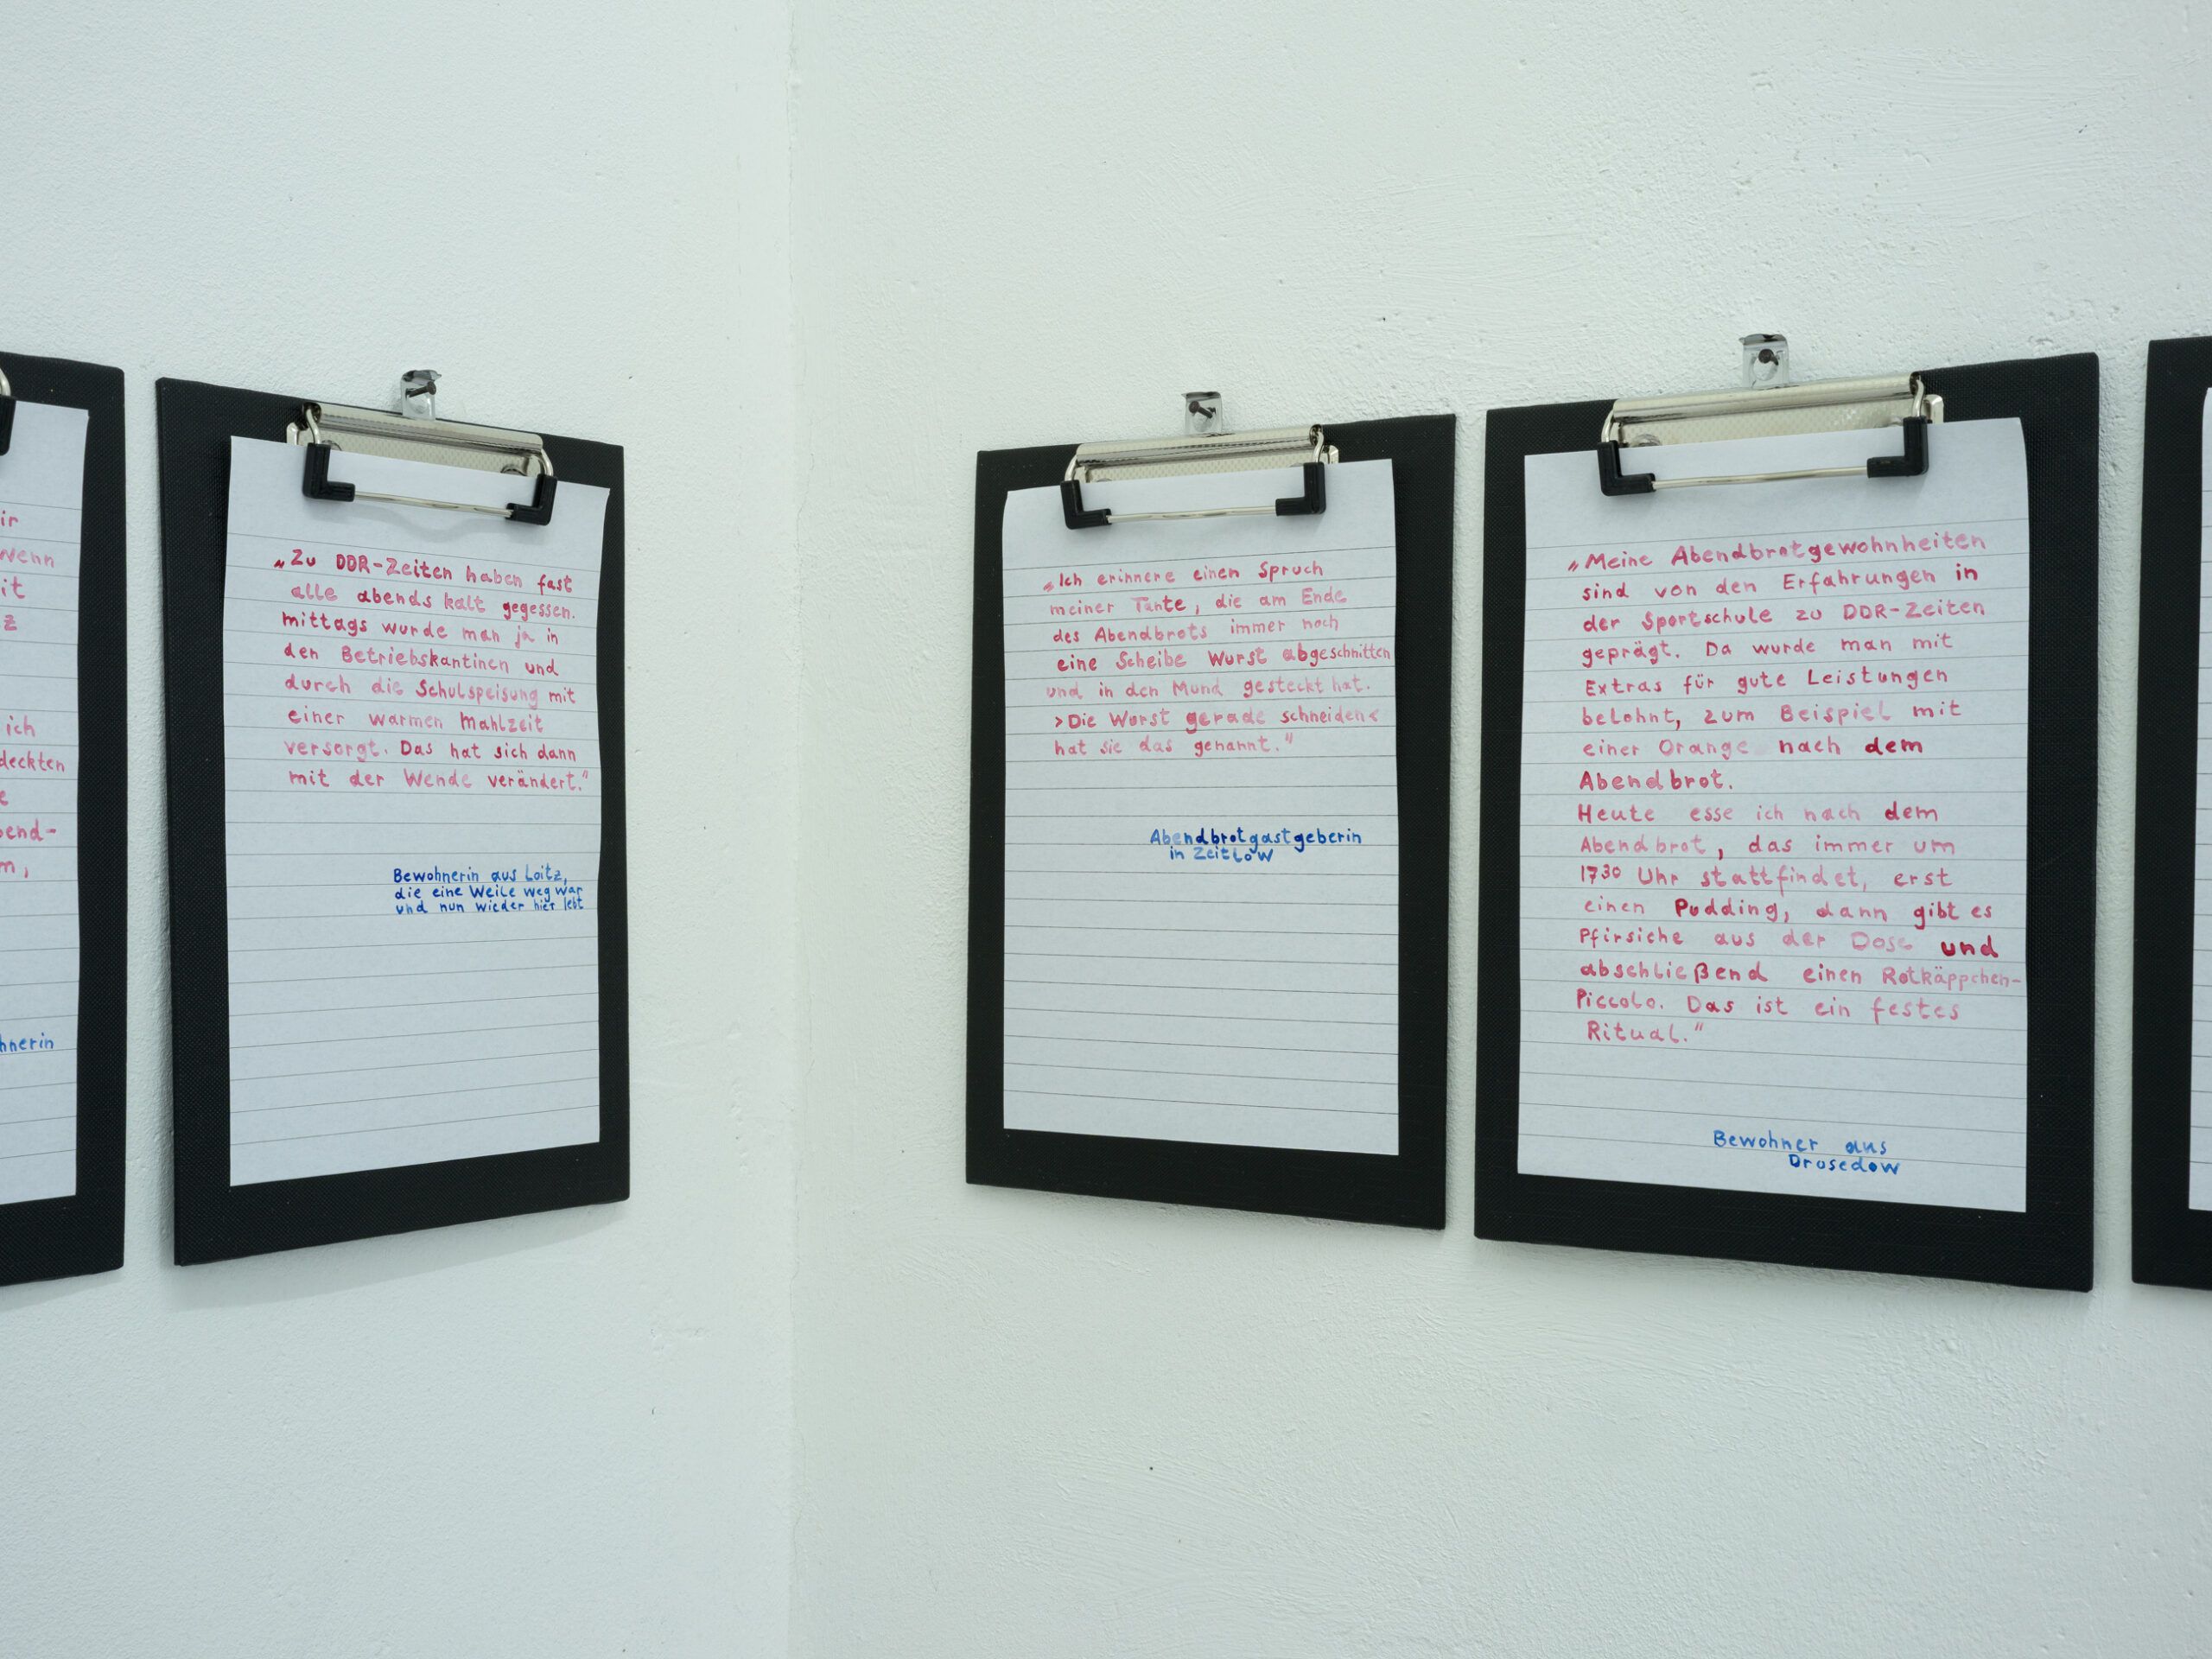 ir
wenn
it
z
ich
deckten
e
bend-
m,
hnerin
„Zu DDR-Zeiten haben fast
alle abends kalt gegessen.
mittags wurde man ja in
den Betriebskantinen und
durch die Schulspeisung mit
einer warmen Mahlzeit
versorgt. Das hat sich dann
mit der Wende verändert."
Bewohnerin aus Loitz,
die eine Weile weg war
und nun wieder hier lebt
„Ich erinnere einen Spruch
meiner Tante, die am Ende
des Abendbrots immer noch
eine Scheibe Wurst abgeschnitten
und in den Mund gesteckt hat.
>Die Wurst gerade schneiden<
hat sie das genannt."
Abendbrotgastgeberin
in Zeitlow
„Meine Abendbrotgewohnheiten
sind von den Erfahrungen in
der Sportschule zu DDR-Zeiten
geprägt. Da wurde man mit
Extras für gute Leistungen
belohnt, zum Beispiel mit
einer Orange nach dem
Abendbrot.
Heute esse ich nach dem
Abendbrot, das immer um
1730 Uhr stattfindet, erst
einen Pudding, dann gibt es
Pfirsiche aus der Dose und
abschließend einen Rotkäppchen-
Piccolo. Das ist ein festes
Ritual."
Bewohner aus
Drosedow